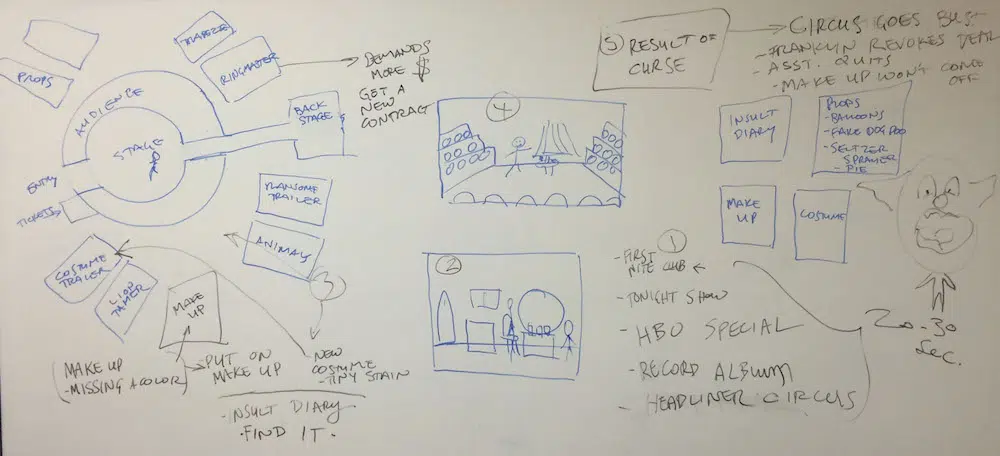 TRAPEZE
RINGMASTER
PROPS
AUDIENCE
STAGE
BACK
STAGE
ENTRY
TICKETS
DEMANDS
MORE $
GET A
NEW
CONTRACT
RANSOME
TRAILER
ANIMALS
COSTUME
TRAILER
LION
TAMER
MAKE
UP
3
MAKE UP
-MISSING A COLOR
PUT ON
MAKE UP
NEW
COSTUME
-TINY STAIN
-INSULT DIARY
·FIND IT.
4
2
5 RESULT OF
CURSE
- CIRCUS GOES BUST
- FRANKLYN REVOKES
ASST. QUITS
- MAKE UP WONT COME
OFF
INSULT
DIARY
PROPS
-BALLOONS
-FAKE DOG POO
-SELTZER
SPRAYER
-PIE
MAKE
UP
COSTUME
1
-FIRST
NITE CLUB
-TONIGHT SHOW
-HBO SPECIAL
-RECORD ALBUM
-HEADLINER CIRCUS
20-30
SEC.